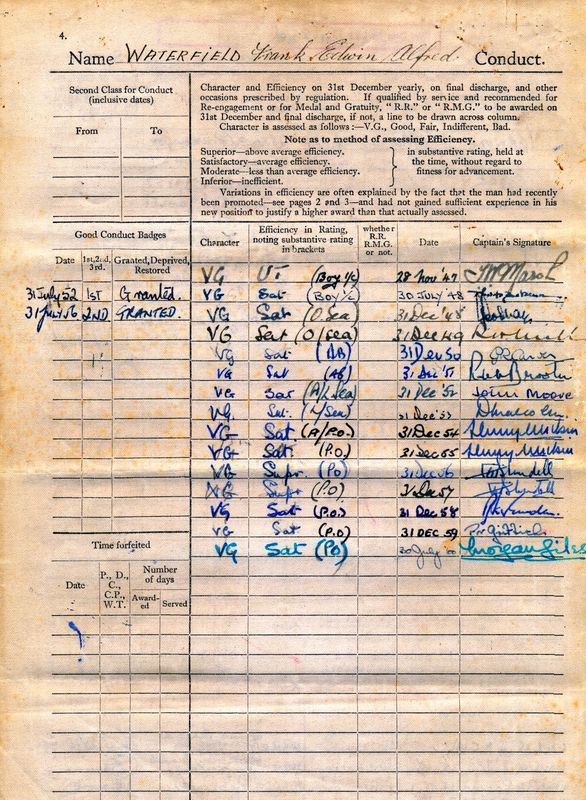 4.
Name WATERFIELD Frank Edwin Alfred Conduct.
Second Class for Conduct
(inclusive dates)
From To
Character and Efficiency on 31st December yearly, on final discharge, and other
occasions prescribed by regulation. If qualified by service and recommended for
Re-engagement or for Medal and Gratuity, “R.R.” or “R.M.G.” to be awarded on
31st December and final discharge, if not, a line to be drawn across column.
Character is assessed as follows :—V.G., Good, Fair, Indifferent, Bad.
Note as to method of assessing Efficiency.
Superior—above average efficiency.
Satisfactory—average efficiency.
Moderate—less than average efficiency.
Inferior—inefficient.
in substantive rating, held at
the time, without regard to
fitness for advancement.
Variations in efficiency are often explained by the fact that the man had recently
been promoted—see pages 2 and 3—and had not gained sufficient experience in his
new position to justify a higher award than that actually assessed.
Good Conduct Badges
Date 1st, 2nd, 3rd. Granted, Deprived, Restored
Character
Efficiency in Rating, noting substantive rating in brackets
whether R.R. R.M.G. or not.
Date
Captain's Signature
VG UT (Boy 1/c) 28 Nov '47
31 July 52 1ST Granted. VG Sat (Boy 1/c) 30 JULY '48
31 July 56 2ND GRANTED. VG Sat (O Sea) 31 Dec '48
VG Sat (O/Sea) 31 Dec 49
VG Sat (AB) 31 Dec 50
VG Sat (AB) 31 Dec '51
VG Sat (A/L Sea) 31 Dec '52 John Moore
VG Sat. (L/Sea) 31 Dec '53
VG Sat. (A/P.O.) 31 Dec 54
VG Sat. (P.O.) 31 Dec 55
VG Supr. (PO) 31 Dec 56
VG Supr (P.O.) 31 Dec 57
VG Sat (P.O.) 31 Dec 58
VG Sat (P.O) 31 DEC 59
VG Sat (PO) 30 July Morgan Giles
Time forfeited
Date
P., D., C., C.P., W.T.
Number of days
Awarded Served